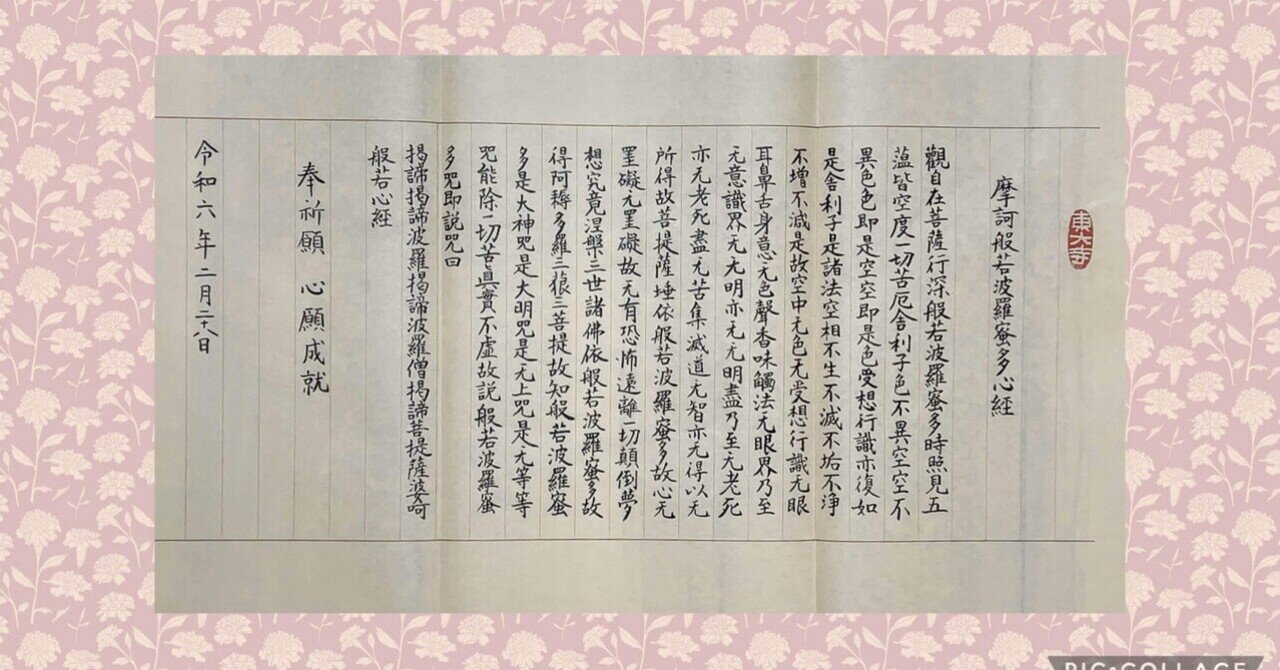 東大寺
摩訶般若波羅蜜多心経
觀自在菩薩行深般若波羅蜜多時照見五
薀皆空度一切苦厄舎利子色不異空空不
異色色即是空空即是色受想行識亦復如
是舎利子是諸法空相不生不滅不垢不浄
不增不減是故空中无色无受想行識无眼
耳鼻舌身意无色聲香味觸法无眼界乃至
无意識界无无明亦无无明盡乃至无老死
亦无老死盡无苦集滅道无智亦无得以无
所得故菩提薩埵依般若波羅蜜多故心无
罣礙无罣礙故无有恐怖遠離一切顛倒夢
想究竟涅槃三世諸佛依般若波羅蜜多故
得阿耨多羅三藐三菩提故知般若波羅蜜
多是大神咒是大明咒是无上咒是无等等
咒能除一切苦真實不虚故説般若波羅蜜
多咒即説咒曰
揭諦揭諦波羅揭諦波羅僧揭諦菩提薩婆呵
般若心経
奉祈願 心願成就
令和六年二月二十八日
PIC•COLLAGE